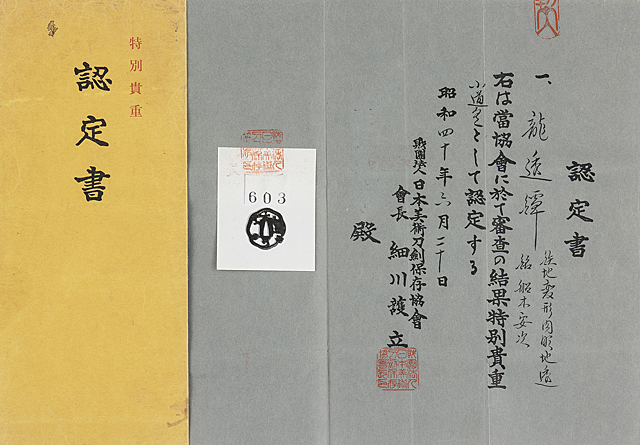 特別貴重
認定書
認定書
一、龍透鐔
鉄地変形肉彫地透
銘 船木安次
右は當協會に於て審査の結果特別貴重
小道具として認定する
昭和四十年六月二十日
財團法人日本美術刀劍保存協會
會長 細川護立
殿
603